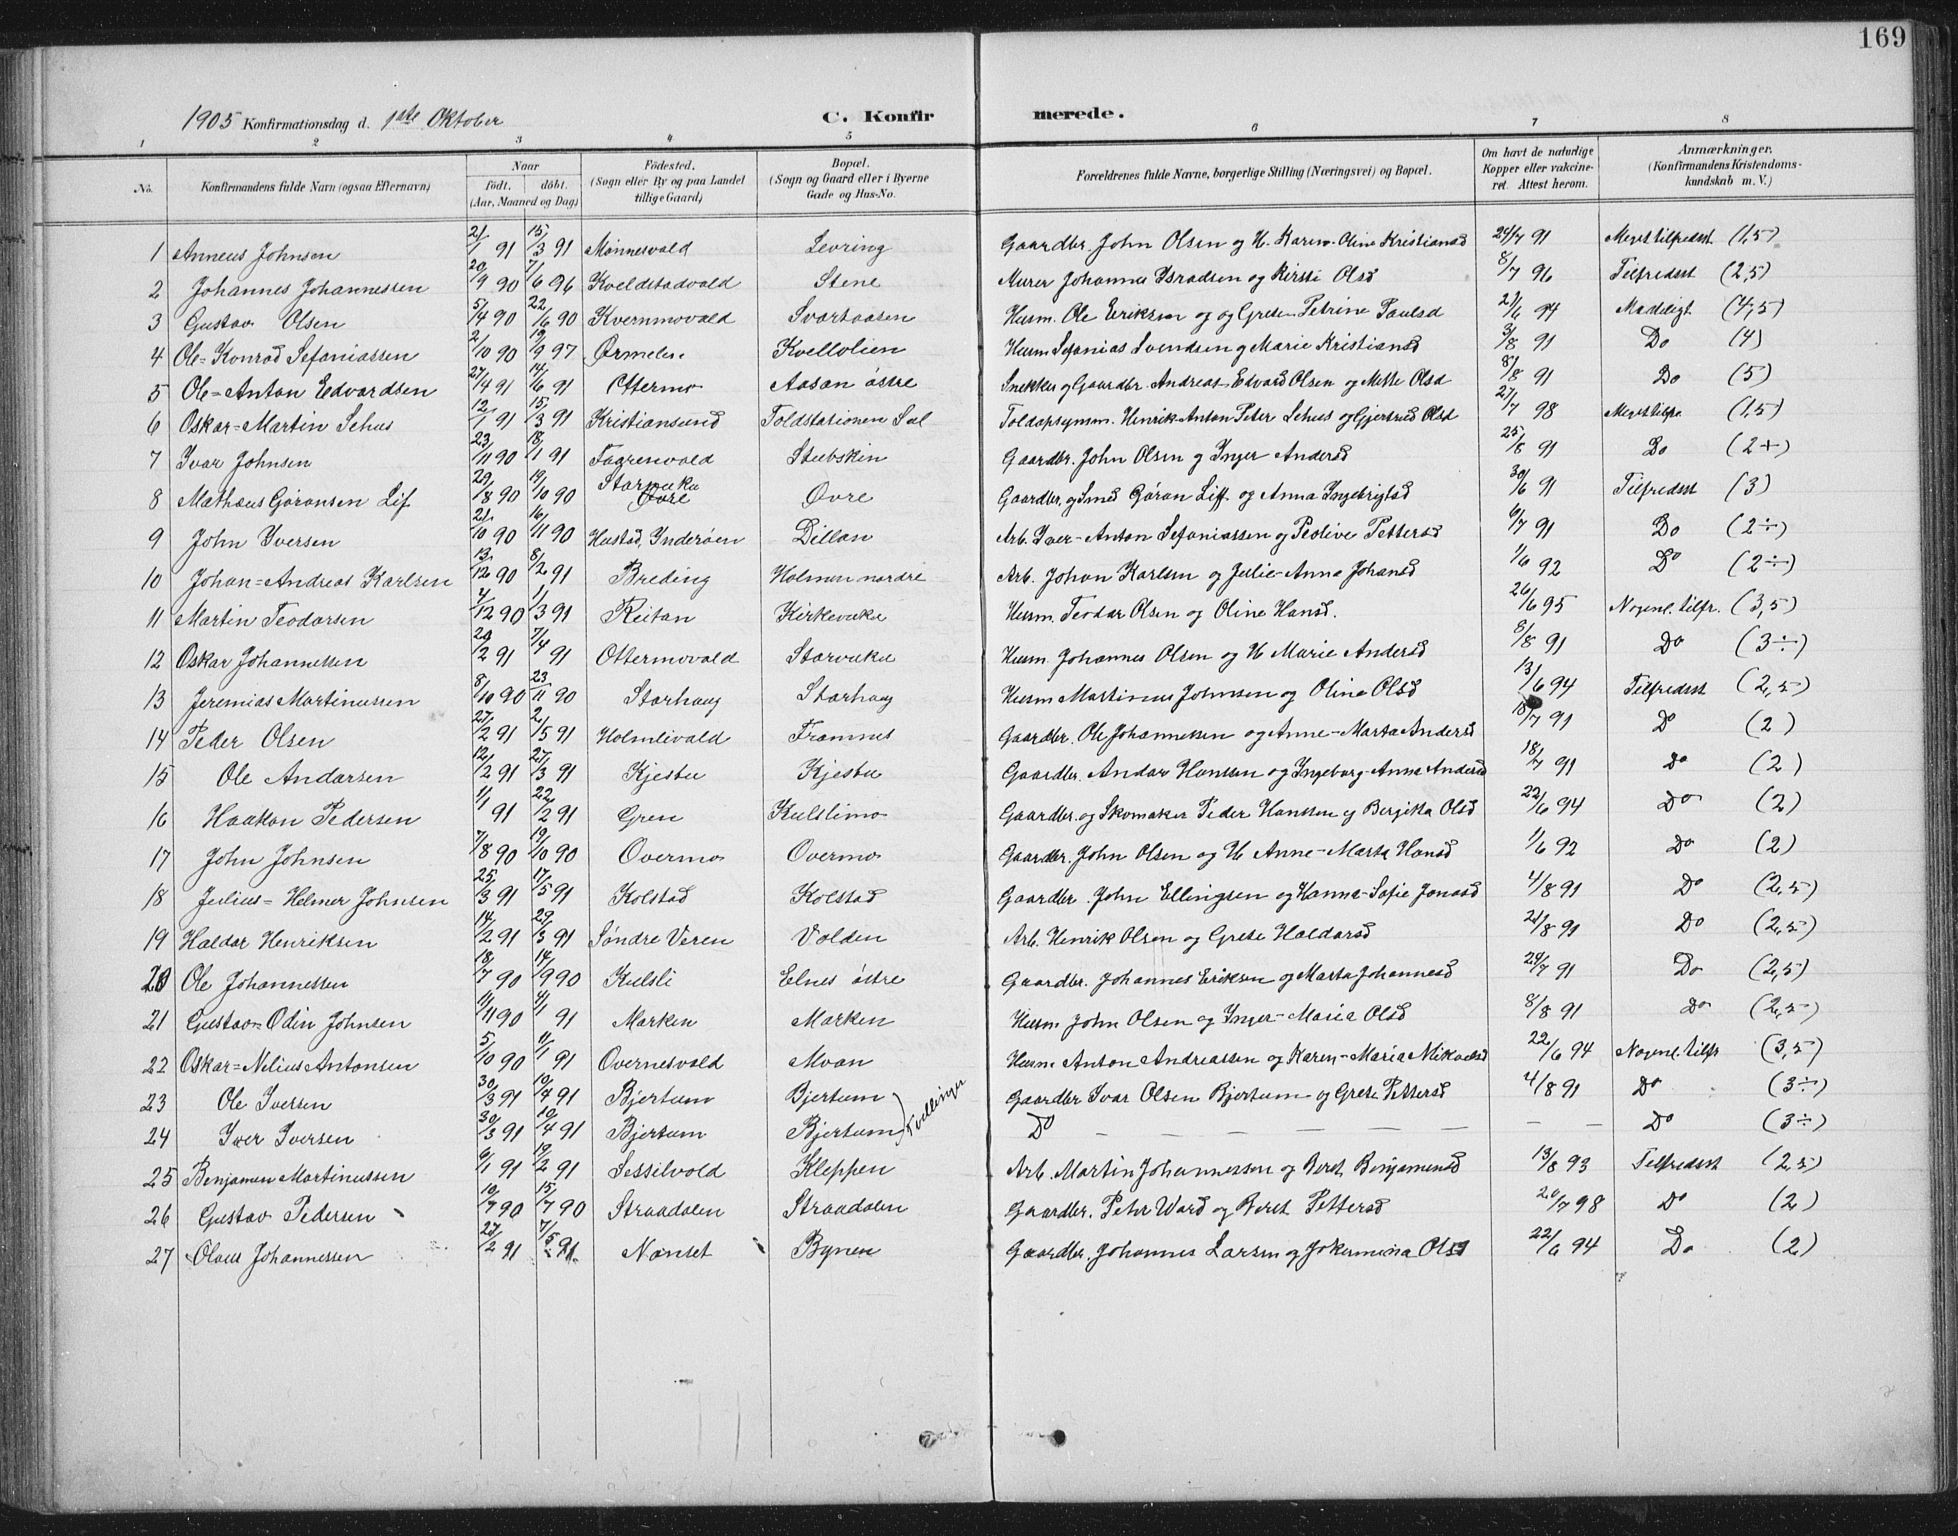 169
1905 Konfirmationsdag d. 1ste Oktober C. Konfirmerede.
1 2 3 4 5 6 7 8
No. Konfirmandens fulde Navn (ogsaa Efternavn) Naar født. døbt. (Aar, Maaned og Dag) Fødested. (Sogn eller By og paa Landet tillige Gaard) Bopæl. (Sogn og Gaard eller i Byerne Gade og Hus-No. Forældrenes fulde Navne, borgerlige Stilling (Næringsvei) og Bopæl. Om havt de naturlige Kopper eller vakcineret. Attest herom. Anmærkninger. (Konfirmandens Kristendomskundskab m. V.)
1 Anneus Johnsen 21/1 91 15/3 91 Minnesvald Levring Gaardbr. John Olsen og H. Karen-Oline Kristiansd 24/7 91 Megettilfredsst (1,5)
2 Johannes Johannessen 20/9 90 7/6 96 Kveldstadvald Stene Murer Johannes Israelsen og Kirsti Olsd 8/7 96 Tilfredsst (2,5)
3 Gustav Olsen 5/4 90 22/6 90 Kvernmovald Svartaasen Husm. Ole Eriksen og og Grete-Petrine Paulsd 21/6 94 Maadeligt (4,5)
4 Ole-Konrad Sefaniassen 2/10 90 19/9 97 Ørmelen Kvellolien Husm Sefanias Svendsen og Marie Kristiansd 3/8 91 Do (4)
5 Ole-Anton Edvardsen 27/4 91 14/6 91 Ottermo Aasan østre Snekker og Gaardbr Andreas Edvard Olsen og Mette Olsd 8/8 91 Do (5)
6 Oskar-Martin Sehus 12/1 91 15/3 91 Kristiansund Toldstationen Sul Toldopsynsm. Henrik-Anton Peter Sehus og Gjertrud Olsd 27/7 98 Megettilfr. (1,5)
7 Ivar Johnsen 23/11 90 18/1 91 Fagrenvald Stubskin Gaardbr. John Olsen og Inger Andersd 25/8 91 Do (2+)
8 Mathæus Gøransen Lif 29/8 90 19/10 90 Storvuku Øvre Øvre Gaardbr. og Smed Gøran Lif. og Anna Ingebrigtsd 30/6 91 Tilfredsst (3)
9 John Iversen 21/10 90 16/11 90 Hustad, Inderøen Dillan Arb. Iver-Anton Sefaniassen og Peolive Pettersd 6/7 91 Do (2÷)
10 Johan-Andreas Karlsen 13/12 90 8/2 91 Breding Holmen nordre Arb. Johan Karlsen og Julie-Anna Johansd 1/6 92 Do (2÷)
11 Martin Teodorsen 4/12 90 1/3 91 Reitan Kirkevuku Husm. Teodor Olsen og Oline Hansd. 26/6 95 Nogenl. tilfr. (3,5)
12 Oskar Johannessen 20/2 91 7/4 91 Ottermovald Storvuku Husm. Johannes Olsen og H Marie Andersd 8/8 91 Do (3÷)
13 Jeremias Martinussen 8/10 90 23/11 90 Storhaug Storhaug Husm Martinus Johnsen og Oline Olsd 13/6 94 Tilfredsst (2,5)
14 Peder Olsen 27/2 91 2/5 91 Holmlivald Framnes Gaardbr. Ole Johannessen og Anne-Marta Andersd 18/7 91 Do (2)
15 Ole Andorsen 12/2 91 27/3 91 Kjesbu Kjesbu Gaardbr. Andor Hanssen og Ingeborg-Anna Andersd 18/7 91 Do (2)
16 Haakon Pedersen 11/1 91 22/2 91 Gren Kulslimo Gaardbr. og Skomaker Peder Hanssen og Bergitta Olsd 22/6 94 Do (2)
17 John Johnsen 7/8 90 19/10 90 Overmo Overmo Gaardbr. John Olsen og H Anne-Marta Hansd 1/6 92 Do (2)
18 Julius-Helmer Johnsen 25/3 91 17/5 91 Kolstad Kolstad Gaardbr. John Ellingsen og Hanna-Sofie Jonasd 4/8 91 Do (2,5)
19 Haldor Henriksen 14/2 91 29/3 91 Søndre Veren Volden Arb. Henrik Olsen og Grete Haldorsd 21/8 91 Do (2,5)
20 Ole Johannessen 18/7 90 14/9 90 Kulsli Eelnes østre Gaardbr. Johannes Eriksen og Marta Johannesd 29/7 91 Do (2,5)
21 Gustav-Odin Johnsen 11/11 90 4/1 91 Marken Marken Husm. John Olsen og Inger-Maria Olsd 8/8 91 Do (2,5)
22 Oskar-Nelius Antonsen 5/10 90 11/1 91 Overnesvald Moan Husm Anton Andreassen og Karen-Maria Mikaelsd 22/6 94 Nogenl. tilfr (3,5)
23 Ole Iversen 30/3 91 19/4 91 Bjertum Bjertum Gaardbr Ivar Olsen Bjertum og Grete Pettersd 4/8 91 Do (3÷)
Tvillinger
24 Iver Iversen 30/3 91 19/4 91 Bjertum Bjertum Do — — — — — — — — Do (3÷)
25 Benjamen Martinussen 6/1 91 19/2 91 Sessilvold Kleppen Arb. Martin Johannessen og Beret Benjamensd 13/8 93 Tilfredsst (2,5)
26 Gustav Pedersen 10/7 90 15/7 90 Straadalen Straadalen Gaardbr. Petr Ward og Beret Pettersd 20/7 98 Do (2)
27 Olaus Johannessen 27/2 91 7/5 91 Nonset Bynen Gaardbr. Johannes Larsen og Jokumina Olsd 22/6 94 Do (2)